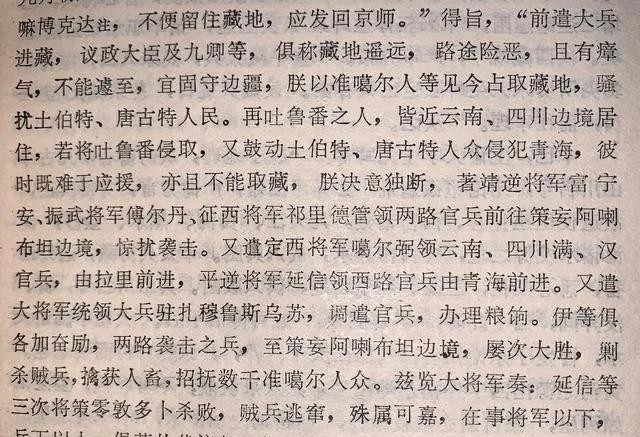 嘛博克达注，不便留住藏地，应发回京师。”得旨，“前遣大兵
进藏，议政大臣及九卿等，俱称藏地遥远，路途险恶，且有瘴
气，不能遽至，宜固守边疆，朕以准噶尔人等见今占取藏地，骚
扰土伯特、唐古特人民。再吐鲁番之人，皆近云南、四川边境居
住，若将吐鲁番侵取，又鼓动土伯特、唐古特人众侵犯青海，彼
时既难于应援，亦且不能取藏，朕决意独断，著靖逆将军富宁
安、振武将军傅尔丹、征西将军祁里德管领两路官兵前往策妄阿喇
布坦边境，惊扰袭击。又遣定西将军噶尔弼领云南、四川满、汉
官兵，由拉里前进，平逆将军延信领西路官兵由青海前进。又遣
大将军统领大兵驻扎穆鲁斯乌苏，调遣官兵，办理粮饷。伊等俱
各加奋励，两路袭击之兵，至策妄阿喇布坦边境，屡次大胜，剿
杀贼兵，擒获人畜，招抚数千准噶尔人众。兹览大将军奏：延信等
三次将策零敦多卜杀败，贼兵逃窜，殊属可嘉，在事将军以下，